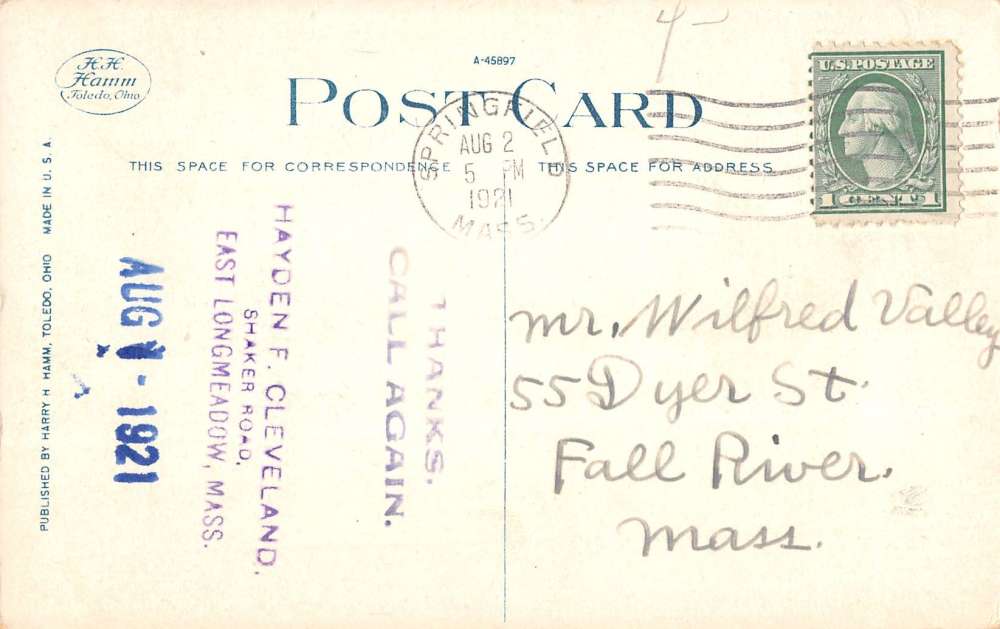 4-
H.H.
Hamm
Toledo, Ohio
A-45897
POST CARD
THIS SPACE FOR CORRESPONDENCE
THIS SPACE FOR ADDRESS.
SPRINGFIELD
AUG 2
5 PM
1921
MASS.
U.S. POSTAGE
1 CENT 1
PUBLISHED BY HARRY H HAMM, TOLEDO, OHIO MADE IN U.S.A.
AUG 1 - 1921
HAYDEN F. CLEVELAND,
SHAKER ROAD,
EAST LONGMEADOW, MASS.
THANKS.
CALL AGAIN.
Mr. Wilfred Valley
55 Dyer St.
Fall River.
Mass.